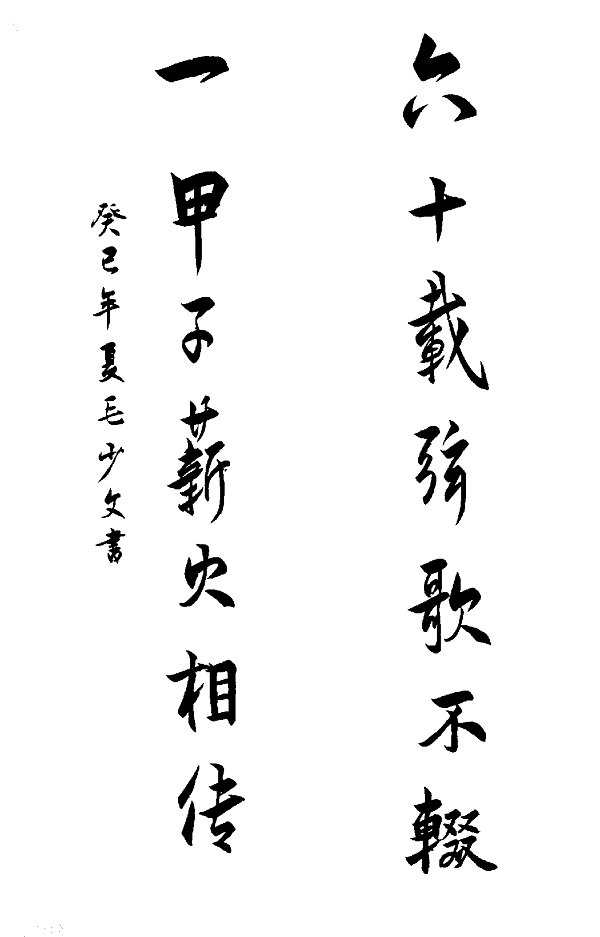 六十載弦歌不輟
一甲子薪火相传
癸巳年夏毛少文書